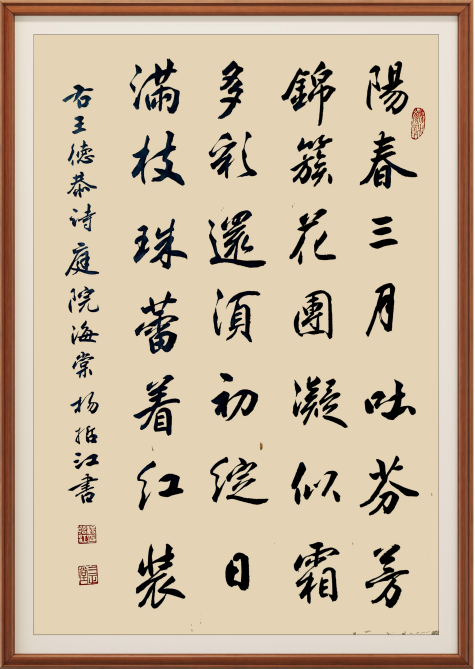 陽春三月吐芬芳
錦簇花團凝似霜
多彩還須初綻日
滿枝珠蕾着红裝
右王德恭诗庭院海棠杨拓江書